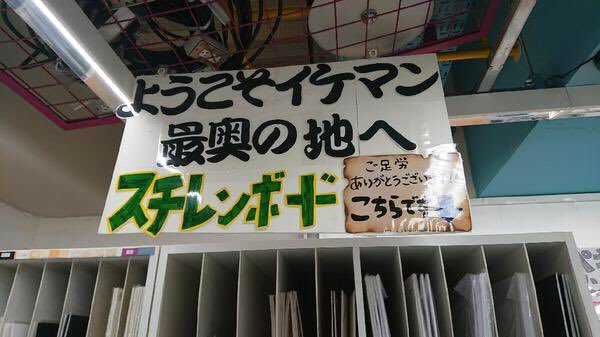 ようこそイケマン
最奥の地へ
スチレンボード
ご足労
ありがとうござい
こちらです